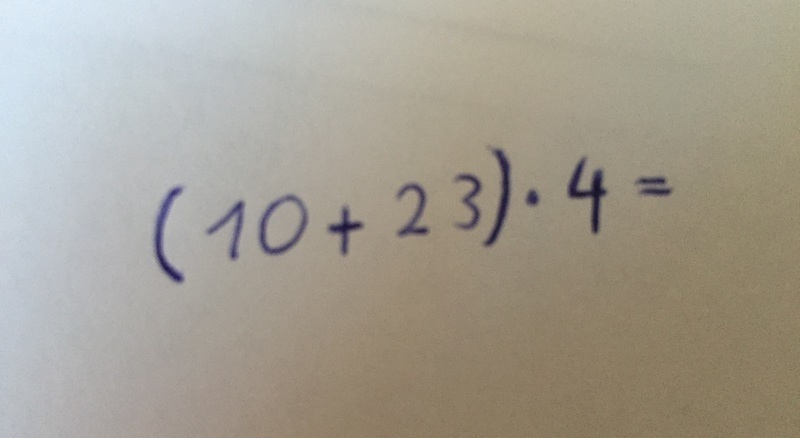 (10 + 23) · 4 =